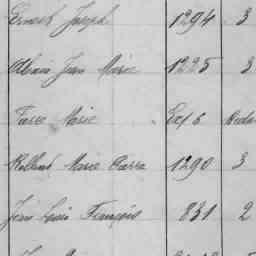 Ernest Joseph 1294 3
Jean Marie 1225 3
Pierre Marie Ex 6
Rolland Marie Pierre 1290 3
Jean Louis François 831 2